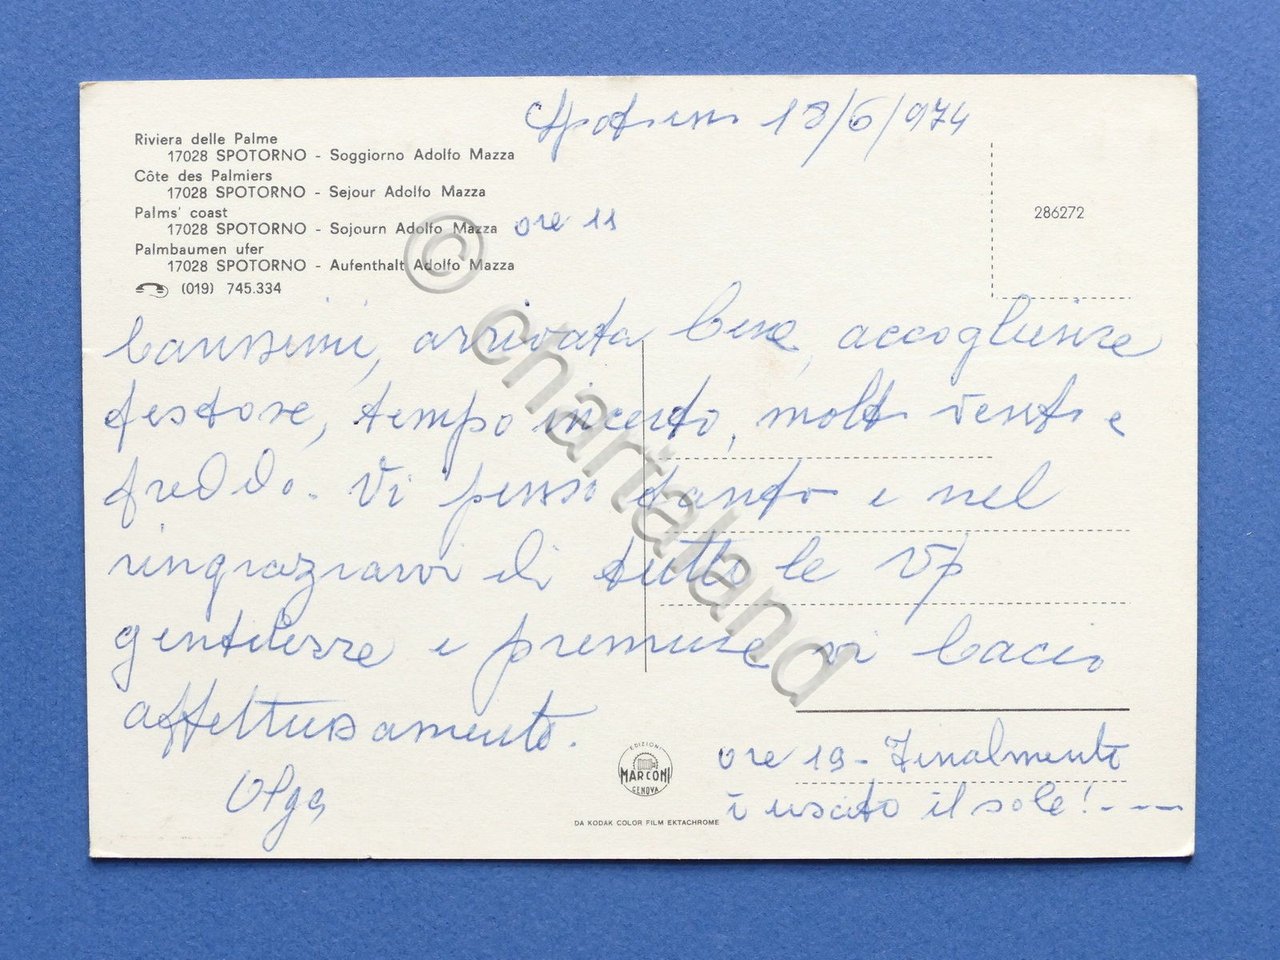 Spotorno 18/6/974
Riviera delle Palme
17028 SPOTORNO - Soggiorno Adolfo Mazza
Côte des Palmiers
17028 SPOTORNO - Sejour Adolfo Mazza
Palms' coast
17028 SPOTORNO - Sojourn Adolfo Mazza
Palmbaumen ufer
17028 SPOTORNO - Aufenthalt Adolfo Mazza
(019) 745.334
286272
ore 11
Carissimi, arrivata bene, accoglienze
festose, tempo incerto, molti venti e
freddo. Vi penso tanto e nel
ringraziarvi di tutte le
gentilezze e premure vi bacio
affettuosamente.
Olga
ore 19 - Finalmente
è uscito il sole! - - -
EDIZIONI
MARCONI
GENOVA
DA KODAK COLOR FILM EKTACHROME
© chartaland